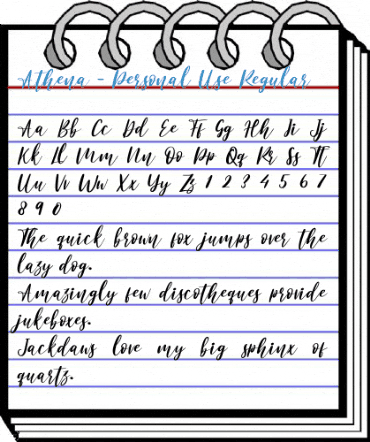 Athena - Personal Use Regular
Aa Bb Cc Dd Ee Ff Gg Hh Ii Jj
Kk Ll Mm Nn Oo Pp Qq Rr Ss Tt
Uu Vv Ww Xx Yy Zz 1 2 3 4 5 6 7
8 9 0
The quick brown fox jumps over the
lazy dog.
Amazingly few discotheques provide
jukeboxes.
Jackdaws love my big sphinx of
quartz.